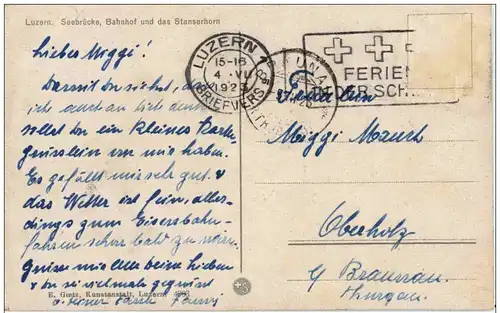 Luzern. Seebrücke, Bahnhof und das Stanserhorn
Liebes Miggi!
Damit du siehst, dass
ich auch an dich denke
sollst du ein kleines Karten-
grüsslein von mir haben.
Es gefällt mir sehr gut. &
das Wetter ist fein, aller-
dings zum Eisenbahn-
fahren schon bald zu warm.
Grüsse mir alle deine Lieben
& du sei vielmals gegrüsst
v. deiner
E. Goetz, Kunstanstalt, Luzern
LUZERN 1
15-16
4 VII
1923
BRIEFVERS
FERIEN
IN DER SCH
Fräulein
Miggi Mauch
Oberholz
b/ Braunau
Thurgau.